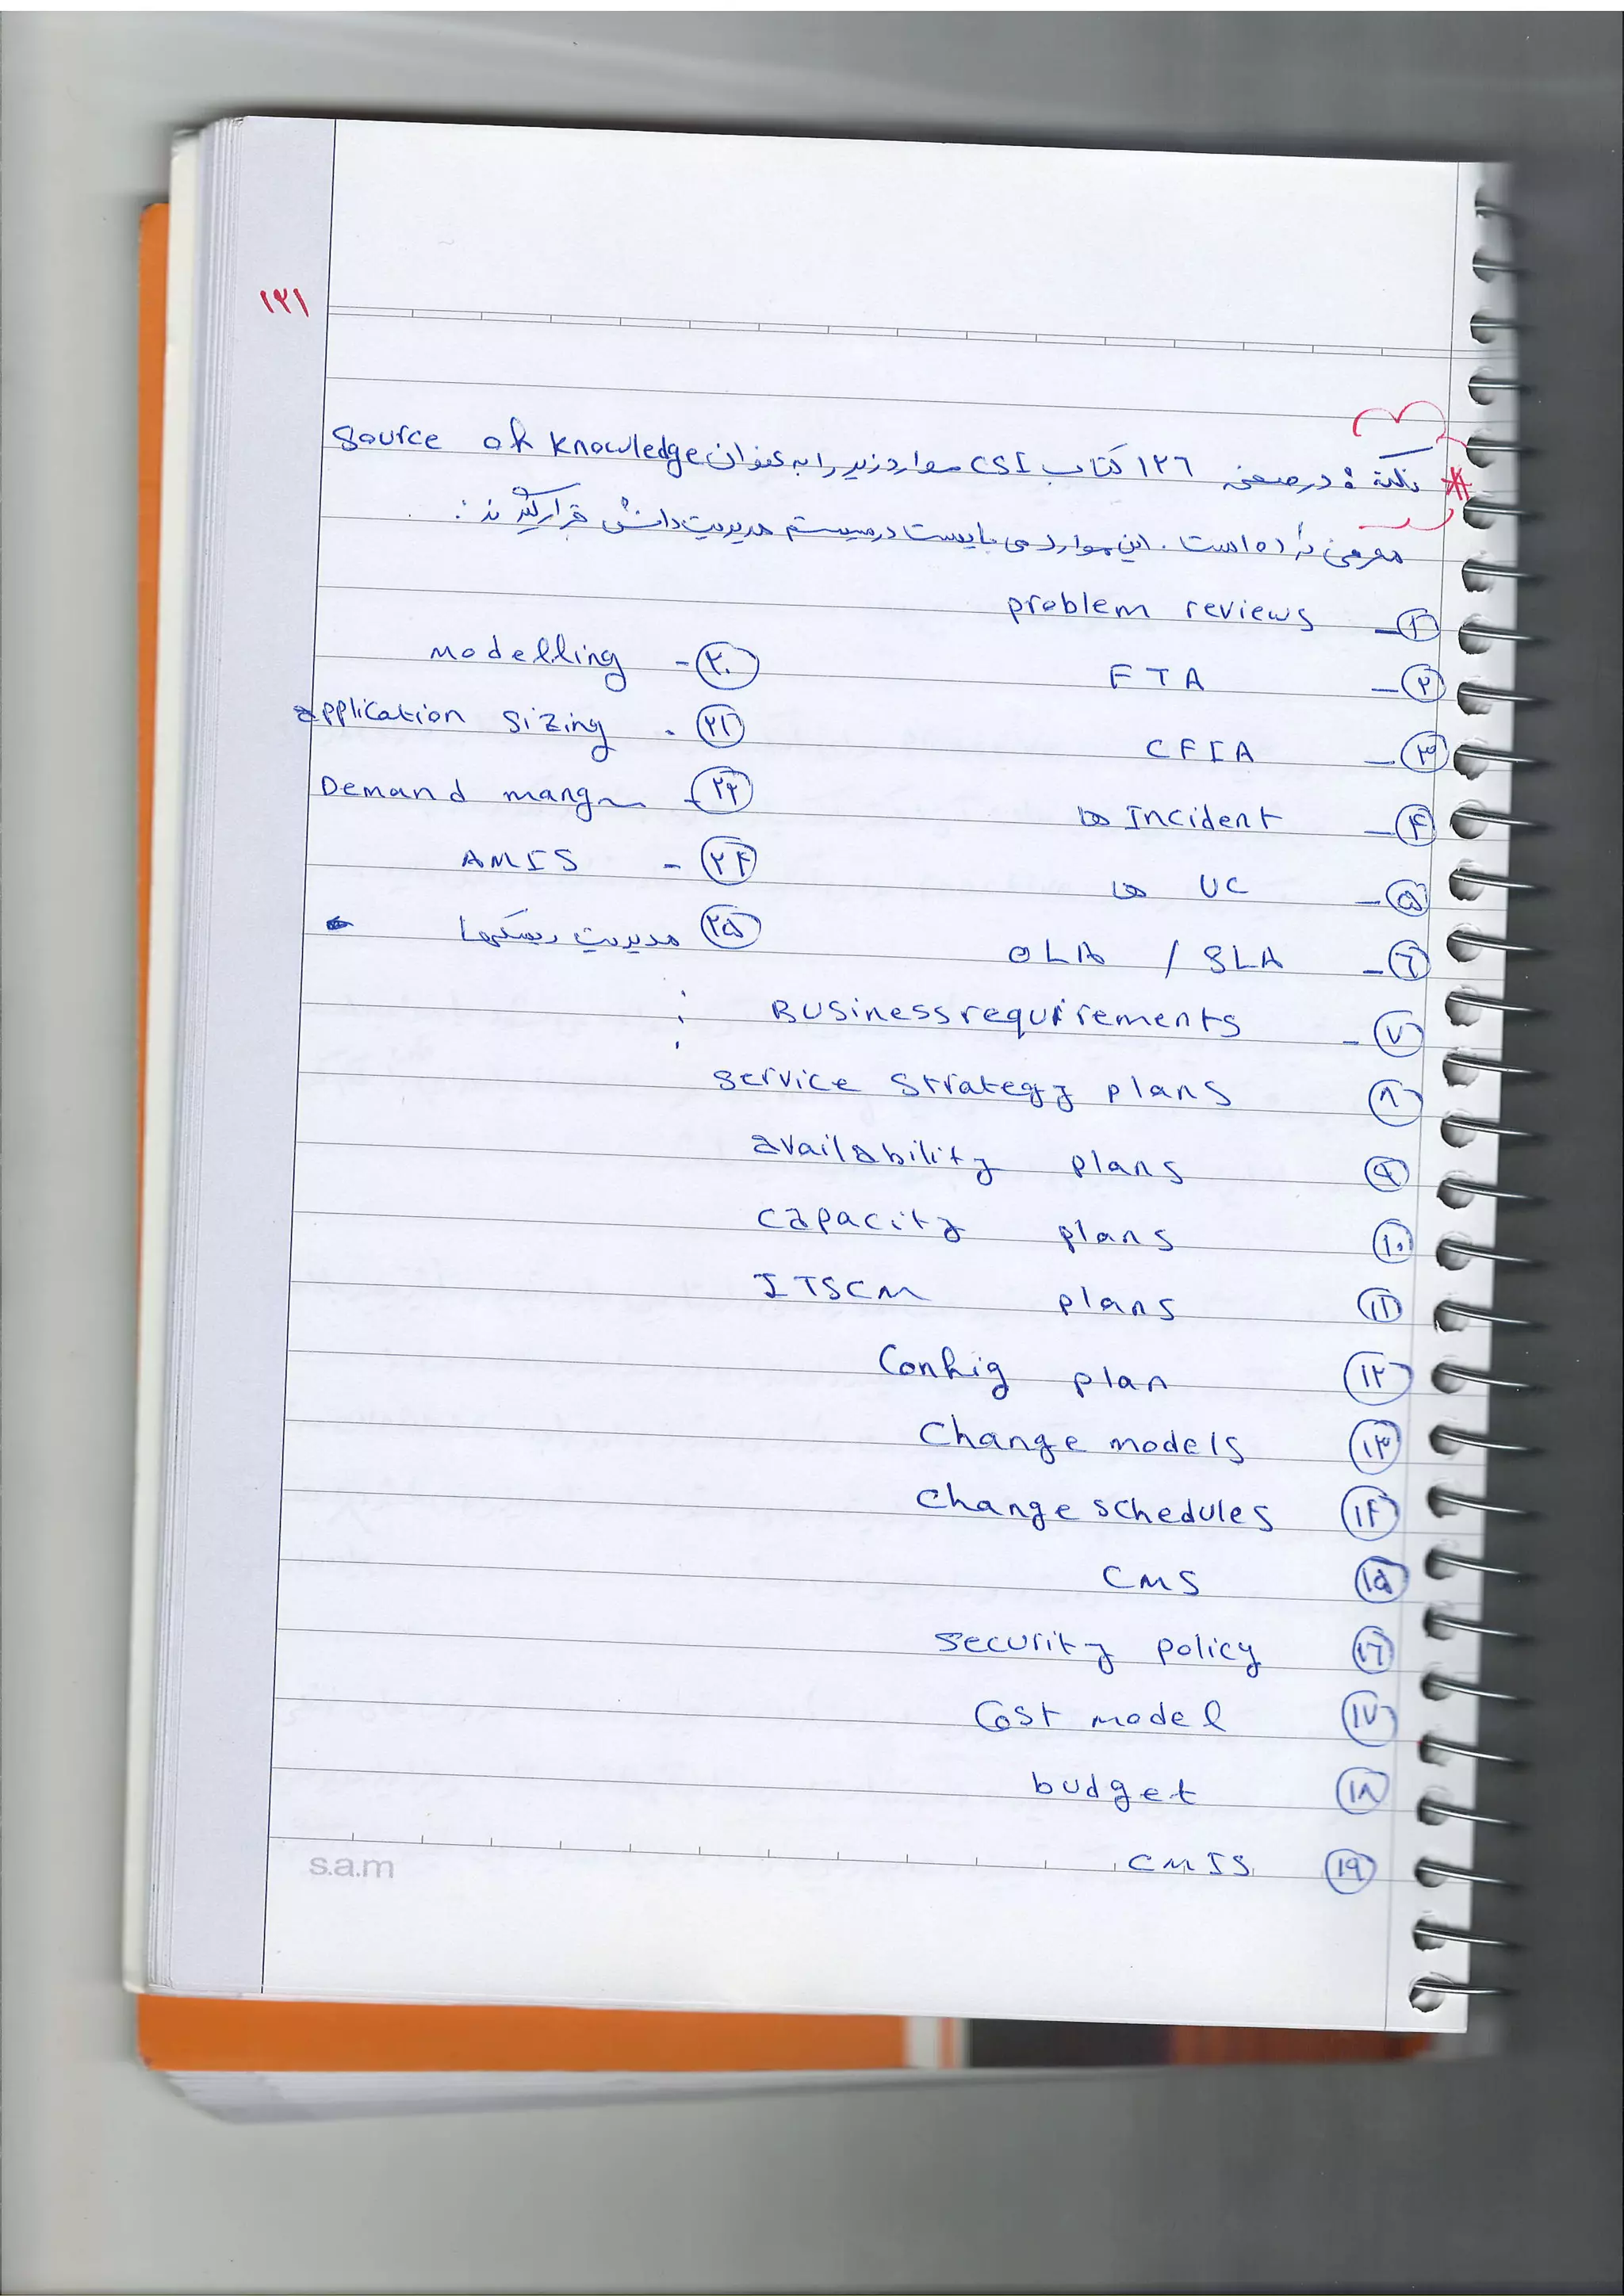 ۱۲۱
* نکته : در صفحه ۱۲۶ کتاب CSI موارد زیر را به عنوان source of knowledge
معرفی کرده است . این موارد می بایست در سیستم مدیریت دانش قرار گیرند :
۱- problem reviews
۲- FTA
۳- CFIA
۴- Incident ها
۵- UC ها
۶- OLA / SLA
۷- Business requirements
۸ service strategy plans
۹ availability plans
۱۰ capacity plans
۱۱ ITSCM plans
۱۲ Config plan
۱۳ change models
۱۴ change schedules
۱۵ CMS
۱۶ security policy
۱۷ Cost model
۱۸ budget
۱۹ CMIS
۲۰- modelling
۲۱- application sizing
۲۲- Demand mang
۲۴- AMIS
۲۵ مدیریت ریسکها
s.a.m